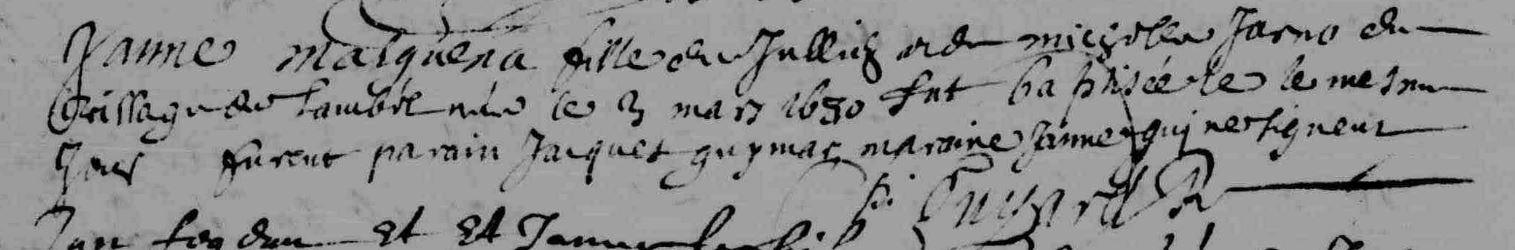 Janne malguena fille de Jullien et de micholle Jarno du
Village de lambel née le 3 mars 1680 fut baptisée le le mesme
Jour furent parain Jacques guymar maraine Janne qui ne signent
Guyard R
Jan et et Janne